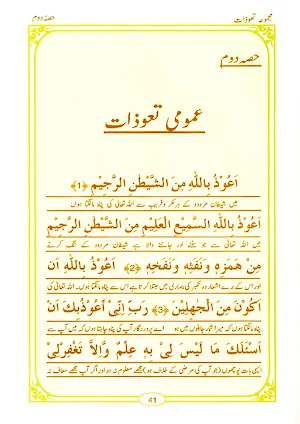 مجموعہ تعوذات
حصہ دوم
حصہ دوم
عمومی تعوذات
اَعُوْذُ بِاللّٰهِ مِنَ الشَّيْطٰنِ الرَّجِيْمِ ﴿1﴾
میں شیطان مردود کے ہر مکر و فریب سے اللہ تعالیٰ کی پناہ مانگتا ہوں
اَعُوْذُ بِاللّٰهِ السَّمِيْعِ الْعَلِيْمِ مِنَ الشَّيْطٰنِ الرَّجِيْمِ
میں اللہ تعالیٰ سے جو سننے اور جاننے والا ہے شیطان مردود کے تنگ کرنے
مِنْ هَمَزِهٖ وَنَفْثِهٖ وَنَفْخِهٖ ﴿2﴾ اَعُوْذُ بِاللّٰهِ اَنْ
اور اس کے برے اشعار و تکبر کی بیماری میں مبتلا کرنے سے پناہ مانگتا ہوں۔ میں اللہ تعالیٰ کی
اَكُوْنَ مِنَ الْجٰهِلِيْنَ ﴿3﴾ رَبِّ اِنِّىْٓ اَعُوْذُ بِكَ اَنْ
پناہ مانگتا ہوں کہ میرا شمار جاہلوں میں ہو اے پروردگار آپ کی پناہ چاہتا ہوں کہ میں آپ سے
اَسْئَلَكَ مَا لَيْسَ لِىْ بِهٖ عِلْمٌ وَاِلَّا تَغْفِرْلِىْ
ایسی بات پوچھوں (جو آپ کی مرضی کے خلاف ہو) مجھے معلوم نہ ہو اور اگر آپ مجھے معاف نہ
41